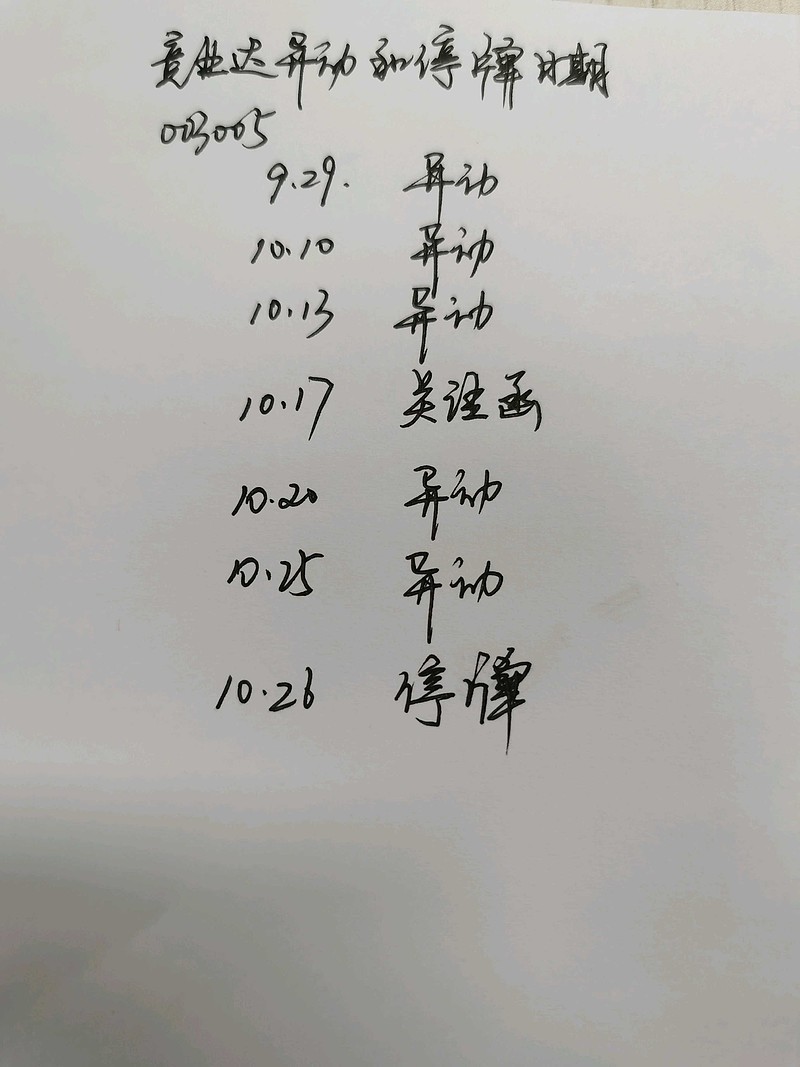 竞业达异动和停牌日期
003005
9.29. 异动
10.10 异动
10.13 异动
10.17 关注函
10.20 异动
10.25 异动
10.26 停牌